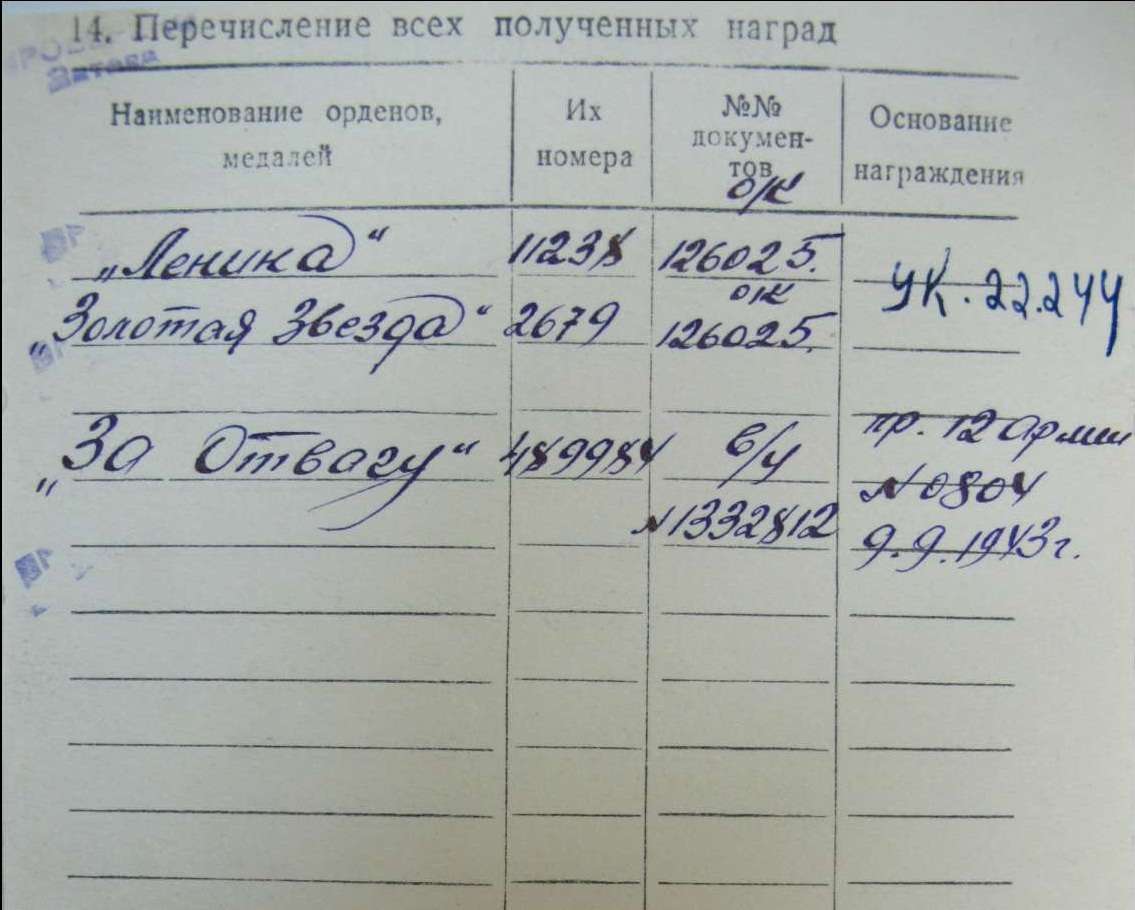 14. Перечисление всех полученных наград
Наименование орденов, медалей
Их номера
№№ докумен-
тов
Основание награждения
о/к
„Ленина“ 11238 126025.
о/к
„Золотая Звезда“ 2679 126025.
УК. 22.2 44
„За Отвагу“ 489984 в/у пр. 12 Армии
№ 0804
№ 1332812 9.9.1943г.